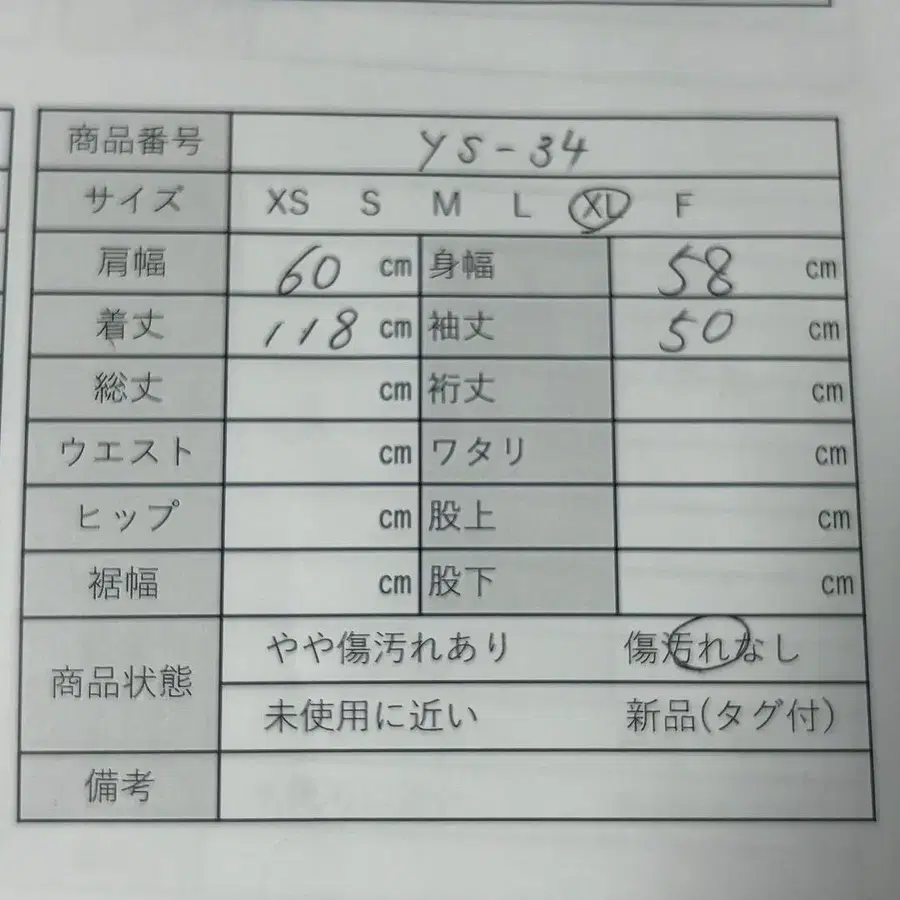 商品番号 YS-34
サイズ XS S M L XL F
肩幅 60 cm 身幅 58 cm
着丈 118 cm 袖丈 50 cm
総丈 cm 裄丈 cm
ウエスト cm ワタリ cm
ヒップ cm 股上 cm
裾幅 cm 股下 cm
商品状態 やや傷汚れあり 傷汚れなし
未使用に近い 新品(タグ付)
備考